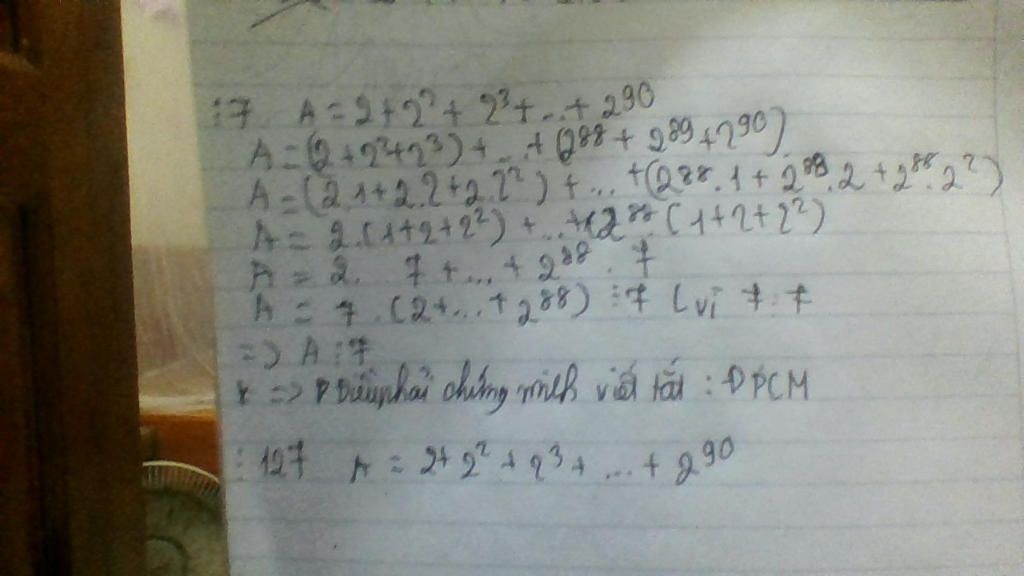 ⋮7 A = 2 + 2² + 2³ + ... + 2⁹⁰
A = (2 + 2² + 2³) + ... + (2⁸⁸ + 2⁸⁹ + 2⁹⁰)
A = (2.1 + 2.2 + 2.2²) + ... + (2⁸⁸.1 + 2⁸⁸.2 + 2⁸⁸.2²)
A = 2.(1 + 2 + 2²) + ... + (2⁸⁸.(1 + 2 + 2²)
A = 2. 7 + ... + 2⁸⁸. 7
A = 7.(2 + ... + 2⁸⁸) ⋮7 (vì 7⋮7
=> A⋮7
* => Điều phải chứng minh viết tắt : ĐPCM
⋮127 A = 2 + 2² + 2³ + ... + 2⁹⁰